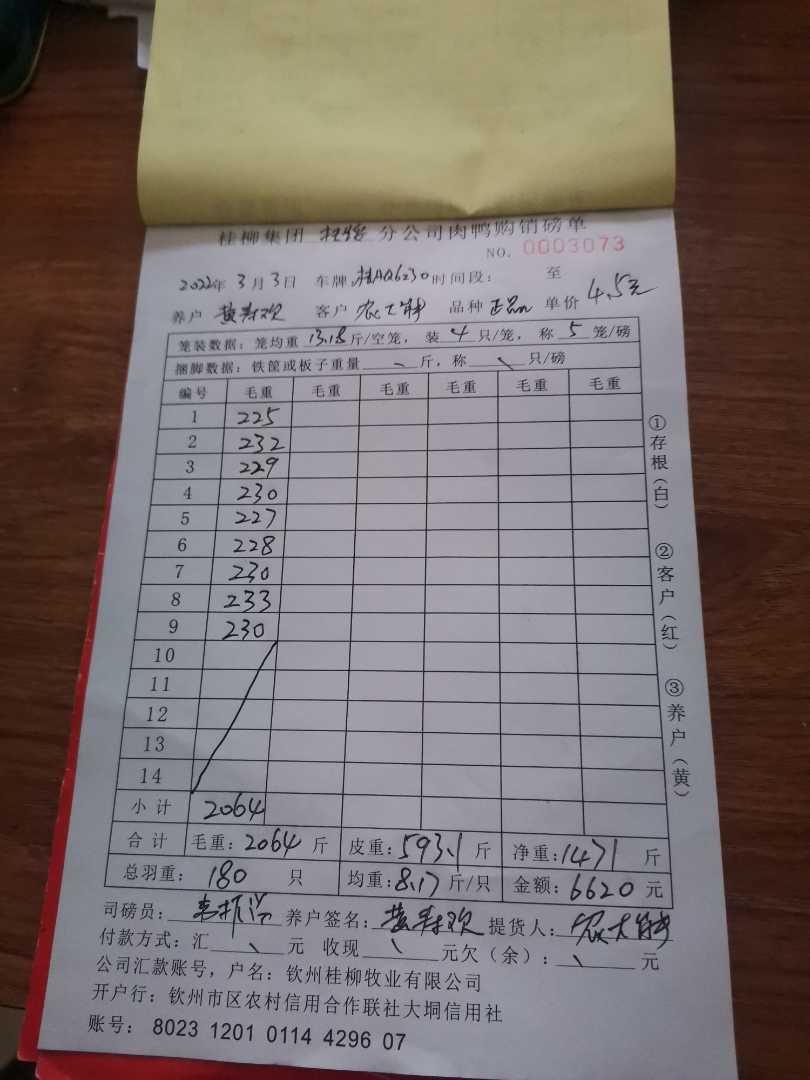 桂柳集团 桂钦 分公司肉鸭购销磅单
NO. 0003073
2022年 3月 3日 车牌:桂AQ6230 时间段: 至
养户 黄寿欢 客户 农大群 品种 正品 单价 4.5元
笼装数据: 笼均重 13.18 斤/空笼, 装 4 只/笼, 称 5 笼/磅
捆脚数据: 铁筐或板子重量 、 斤, 称 、 只/磅
编号 毛重 毛重 毛重 毛重 毛重 毛重
1 225
2 232
3 229
4 230
5 227
6 228
7 230
8 233
9 230
10
11
12
13
14
小计 2064
合计 毛重: 2064 斤 皮重: 593.1 斤 净重: 1471 斤
总羽重: 180 只 均重: 8.17 斤/只 金额: 6620 元
司磅员: 养户签名: 黄寿欢 提货人: 农大群
付款方式: 汇 、 元 收现 、 元欠(余): 、 元
公司汇款账号, 户名: 钦州桂柳牧业有限公司
开户行: 钦州市区农村信用合作联社大垌信用社
账号: 8023 1201 0114 4296 07
①存根(白) ②客户(红) ③养户(黄)